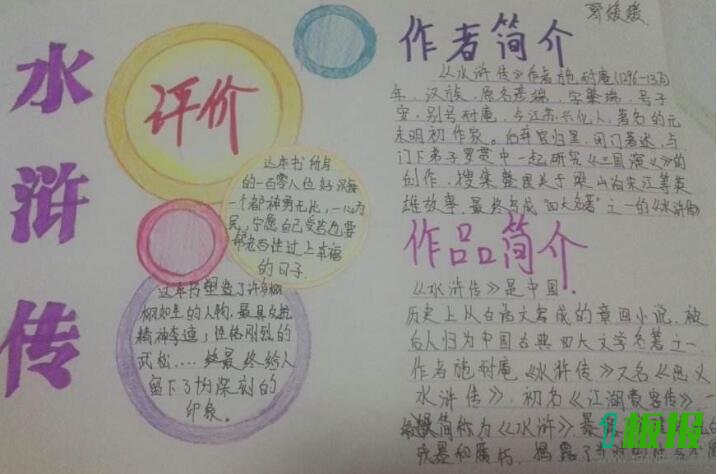 水浒传
评价
这本书所写
的一百零八位好汉每
一个都神勇无比，一心为
民，宁愿自己受苦也要
帮老百姓过上幸福
的日子。
这本书塑造了许多栩
栩如生的人物，最具反抗
精神李逵；性格刚烈的
武松....最终给人
留下了均深刻的
印象。
作者简介
《水浒传》作者施耐庵(1296-1371)
年，汉族，原名彦端，字肇瑞，号子
安，别号耐庵，今江苏兴化人，著名的元
末明初作家。白弃官归里，闭门著述，与
门下弟子罗贯中一起研究《三国演义》的
创作，搜集整理关于梁山泊宋江等英
雄故事，最终写成"四大名著"之一的《水浒传》
作品简介
《水浒传》是中国
历史上从白话文写成的章回小说，被
后人归为中国古典四大文学名著之一
作者施耐庵《水浒传》又名《忠义
水浒传》，初名《江湖豪客传》，一
般简称为《水浒》
板报